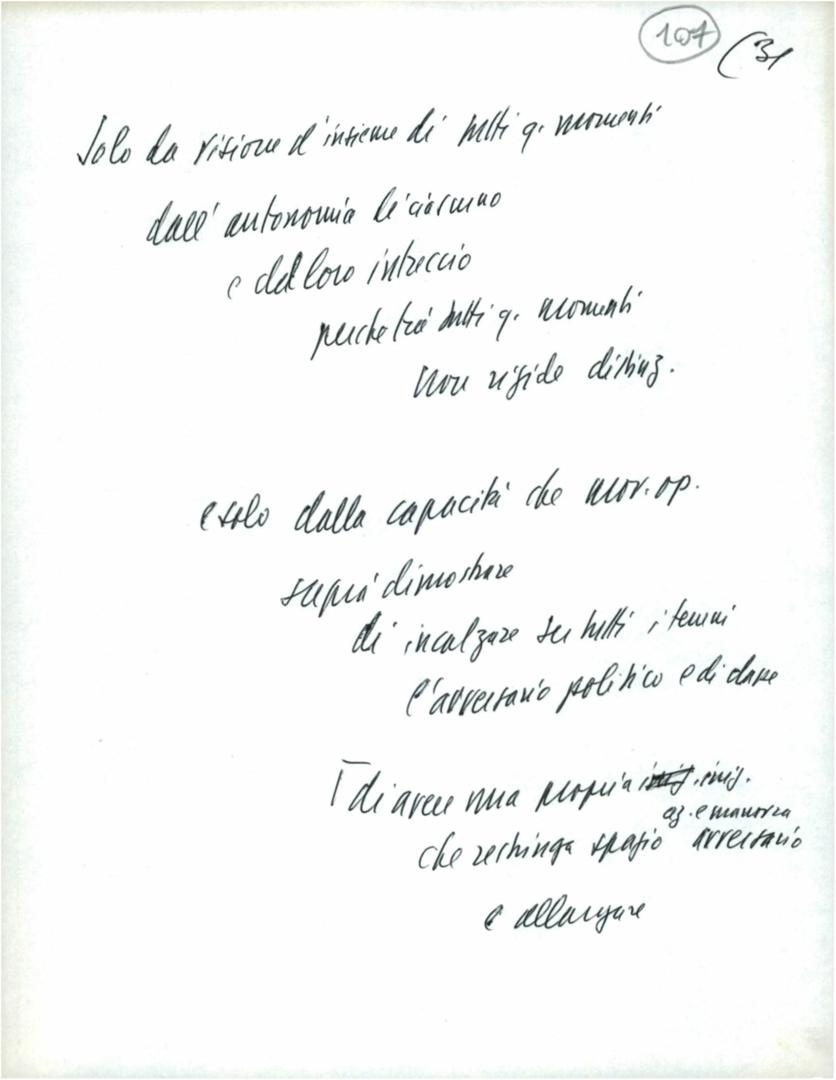 107 (31
Solo da visione d'insieme di tutti q. momenti
dall'autonomia di ciascuno
e dal loro intreccio
perché tra tutti q. momenti
non rigide distinz.
e solo dalla capacità che mov. op.
saprà dimostrare
di incalzare su tutti i terreni
l'avversario politico e di dare
di avere una propria iniz.
az. e manovra
che restringa spazio avversario
e allargare